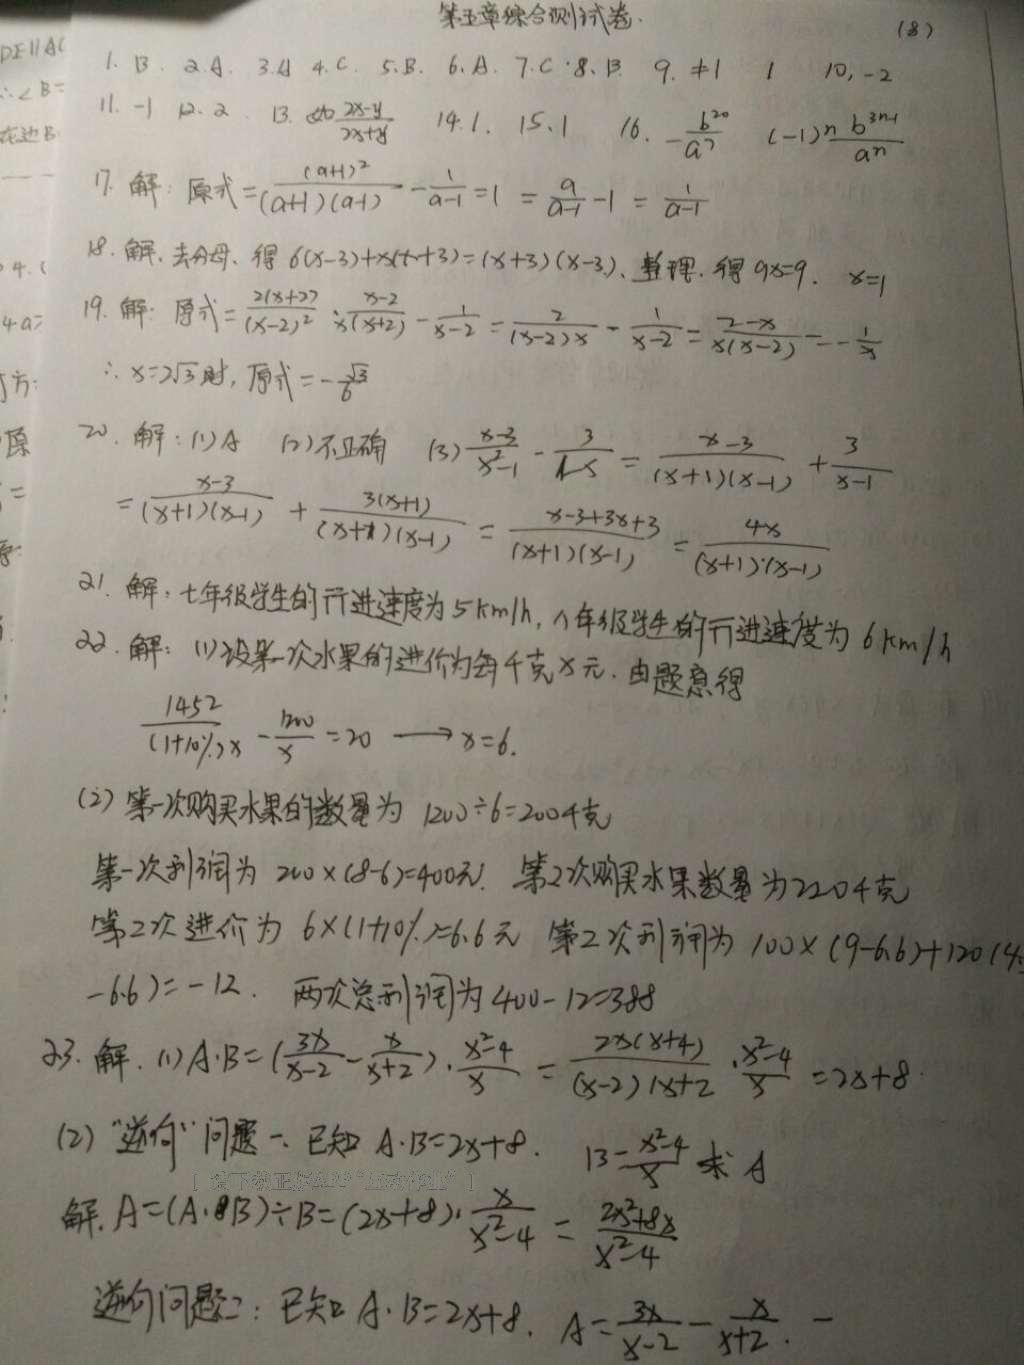 第五章综合测试卷.
(8)
DE∥AC
∴∠B=
1. B. 2. A. 3. A 4. C. 5. B. 6. A. 7. C. 8. B. 9. ≠1 1 10, -2
11. -1 12. 2 13. (2x-y)/(2x+y) 14. 1. 15. 1 16. -b²⁰/a⁷ (-1)ⁿ b³ⁿ⁻¹/aⁿ
17. 解: 原式=(a+1)²/(a+1)(a-1) - 1/(a-1) = 1 = a/(a-1) - 1 = 1/(a-1)
18. 解. 去分母、得 6(x-3)+x(x+3)=(x+3)(x-3)、整理. 得 9x=9. x=1
19. 解: 原式=2(x+2)/(x-2)² · (x-2)/x(x+2) - 1/(x-2) = 2/(x-2)x - 1/(x-2) = (2-x)/x(x-2) = -1/x
∴ x=2√3时, 原式=-√3/6
20. 解: (1) A (2)不正确 (3) (x-3)/(x²-1) - 3/(1-x) = (x-3)/(x+1)(x-1) + 3/(x-1)
= (x-3)/(x+1)(x-1) + 3(x+1)/(x+1)(x-1) = (x-3+3x+3)/(x+1)(x-1) = 4x/(x+1)·(x-1)
21. 解: 七年级学生的行进速度为5km/h, 八年级学生的行进速度为6km/h
22. 解: (1)设第一次水果的进价为每千克x元. 由题意得
1452/(1+10%)x - 1200/x = 20 → x=6.
(2) 第一次购买水果的数量为 1200÷6=200千克
第一次利润为 200×(8-6)=400元. 第2次购买水果数量为220千克
第2次进价为 6×(1+10%)=6.6元 第2次利润为 100×(9-6.6)+120(4.5
-6.6)=-12. 两次总利润为400-12=388
23. 解. (1) A·B=(3x/(x-2) - x/(x+2))·(x²-4)/x = 2x(x+4)/(x-2)(x+2 · (x²-4)/x = 2x+8.
(2) "逆向"问题一. 已知 A·B=2x+8. B=(x²-4)/x 求 A
解. A=(A·B)÷B=(2x+8)·x/(x²-4) = (2x²+8x)/(x²-4)
逆向问题二: 已知 A·B=2x+8. A=3x/(x-2) - x/(x+2). -